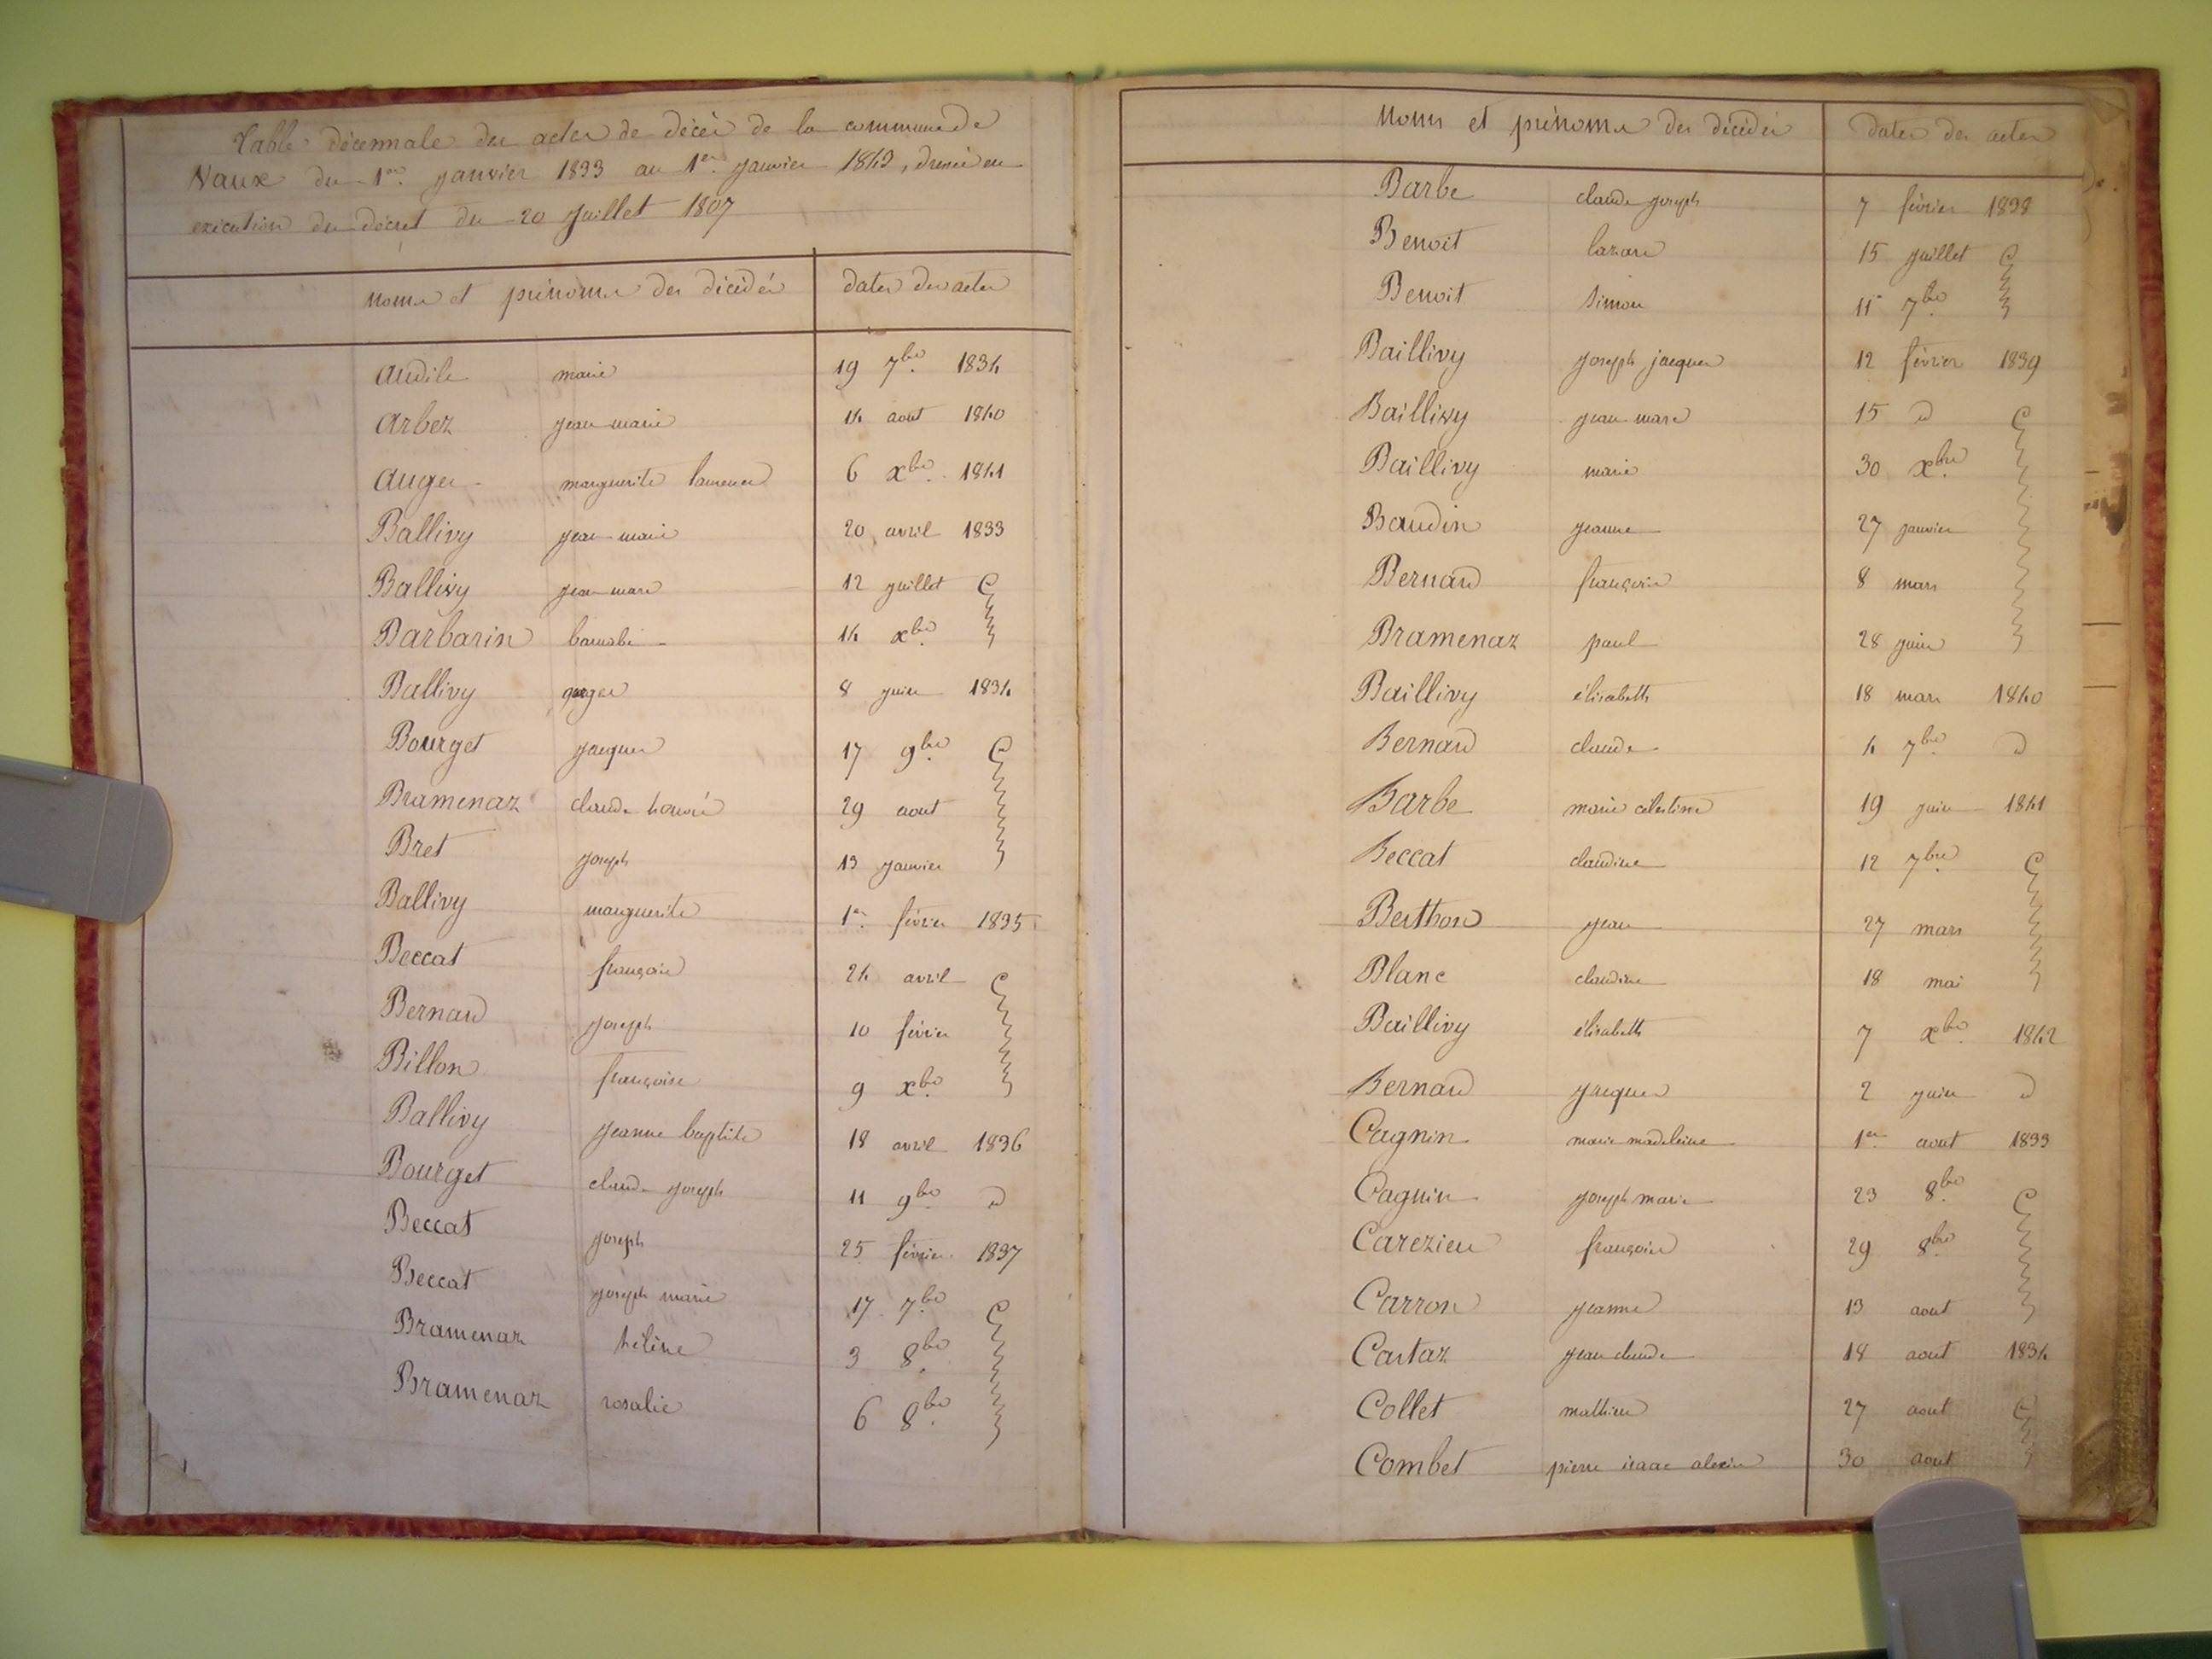 Table décennale des actes de décès de la commune de
Vaux du 1er. janvier 1833 au 1er. janvier 1843, dressée en
exécution du décret du 20 juillet 1807
noms et prénoms des décédés dates des actes
Audile marie 19 7bre. 1834
Arbez jean marie 14 aout 1840
Auger marguerite laurence 6 xbre. 1841
Ballivy jean marie 20 avril 1833
Ballivy jean marc 12 juillet
Barbarin barnabé 14 xbre.
Ballivy 8 juin 1834
Bourget jacques 17 9bre.
Bramenaz claude honoré 29 aout
Bret joseph 13 janvier
Ballivy marguerite 1er. février 1835
Beccat françois 24 avril
Bernard joseph 10 février
Billon françoise 9 xbre.
Ballivy jeanne baptiste 18 avril 1836
Bourget claude joseph 11 9bre. d
Beccat joseph 25 février 1837
Beccat joseph marie 17 7bre.
Bramenaz hélène 3 8bre.
Bramenaz rosalie 6 8bre.
Noms et prénoms des décédés dates des actes
Barbe claude joseph 7 février 1838
Benoit lazare 15 juillet
Benoit simon 11 7bre.
Baillivy joseph jacques 12 février 1839
Baillivy jean marc 15 d
Baillivy marie 30 xbre.
Baudin jeanne 27 janvier
Bernard françois 8 mars
Bramenaz paul 28 juin
Baillivy élisabeth 18 mars 1840
Bernard claude 4 7bre. d
Barbe marie celestine 19 juin 1841
Beccat claudine 12 7bre.
Berthon jean 27 mars
Blanc claudine 18 mai
Baillivy élisabeth 7 xbre. 1842
Bernard jacques 2 juin d
Cagnin marie madeleine 1er. aout 1833
Cagnin joseph marie 23 8bre.
Carezieu françois 29 8bre.
Carron jeanne 13 aout
Cartaz jean claude 18 aout 1834
Collet mathieu 27 aout
Combet pierre isaac alexis 30 aout